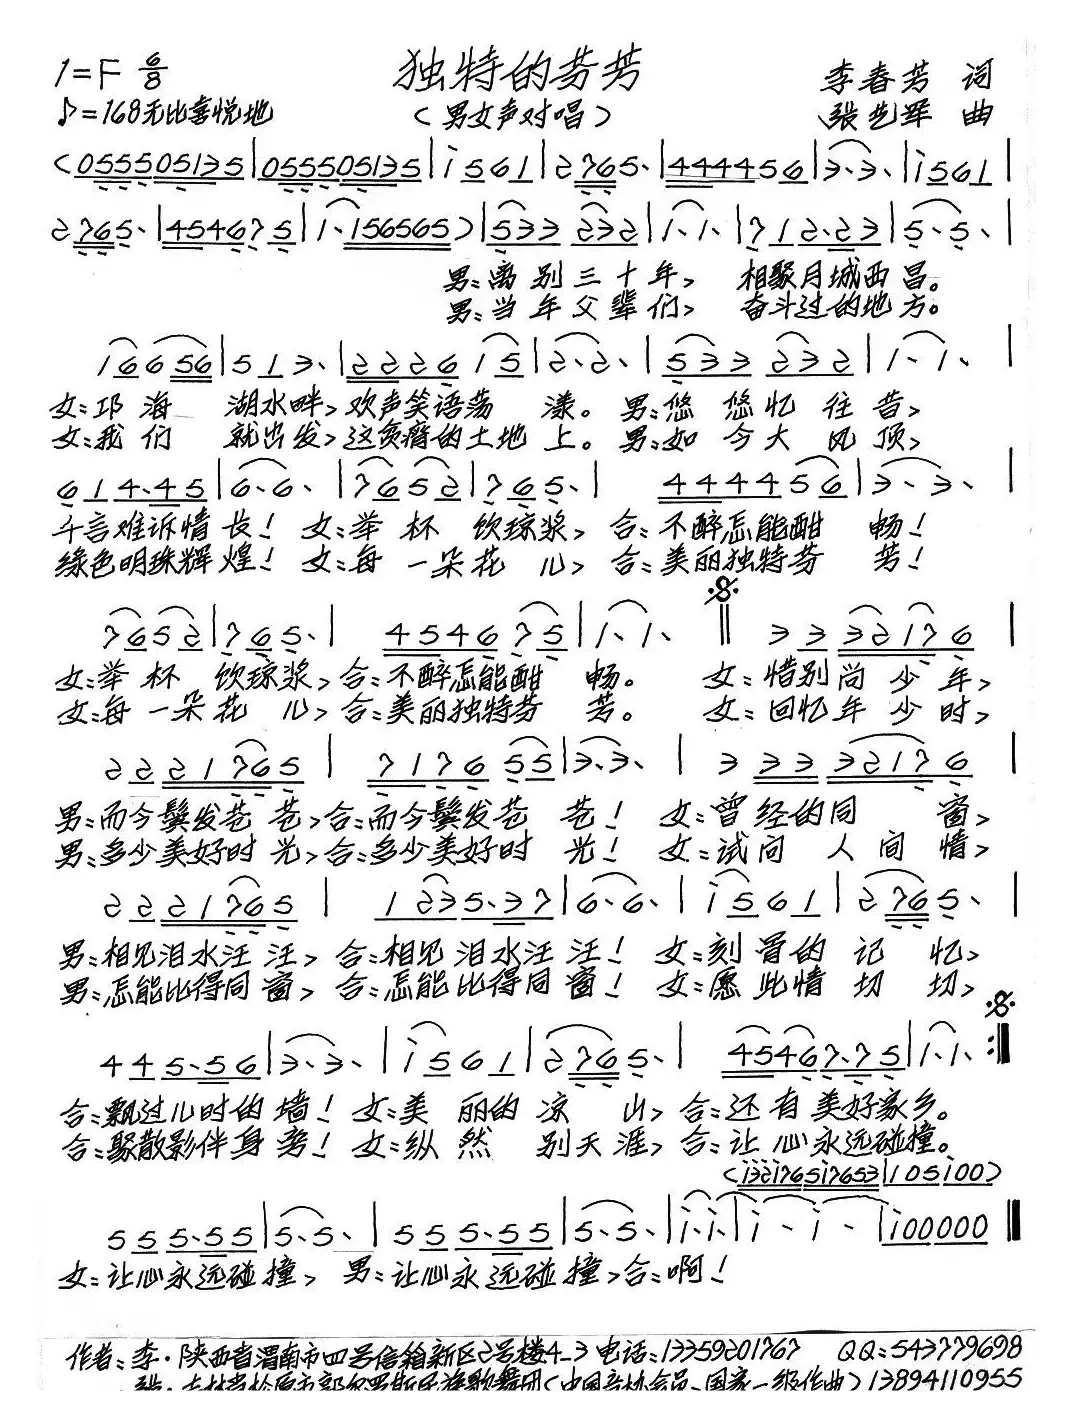 1=F 6/8 独特的芬芳 李春芳 词
♪=168无比喜悦地 （男女声对唱） 张艺军 曲
(055505135|055505135|i561|2765.|444456|3.3.|i561|
2765.|454675|1.156565)|533 232|1.1.|712.23|5.5.|
男:离别三十年, 相聚月城西昌。
男:当年父辈们, 奋斗过的地方。
16656|513.|222615|2.2.|533 232|1.1.|
女:邛海 湖水畔,欢声笑语荡 漾。男:悠 悠忆 往 昔,
女:我们 就出发,这贫瘠的土地 上。男:如 今大 风 顶,
614.45|6.6.|7652|765.| 444456|3.3.|
千言难诉情长！ 女:举 杯 饮琼浆, 合:不醉怎能酣 畅！
绿色明珠辉煌！ 女:每 一朵花 儿, 合:美丽独特芬 芳！
7652|765.| 454675|1.1. || 33 32176|
女:举 杯 饮琼浆,合:不醉怎能酣 畅。 女:惜别尚 少 年,
女:每 一朵花 儿,合:美丽独特芬 芳。 女:回忆年 少 时,
2221765| 717655|3.3.| 33332176|
男:而今鬓发苍 苍,合:而今鬓发苍 苍！ 女:曾经的同 窗,
男:多少美好时 光,合:多少美好时 光！ 女:试问 人 间 情,
2221765| 1235.37|6.6.|i561|2765.|
男:相见泪水汪 汪, 合:相见 泪水汪 汪！ 女:刻骨的 记 忆,
男:怎能比得同窗, 合:怎能 比得同窗！ 女:愿 此情 切 切,
445.56|3.3.|i561|2765.| 45467.75|1.1.:||
合:飘过儿时的 墙！ 女:美 丽的 凉 山, 合:还 有 美好家乡。
合:聚散影伴身 旁！ 女:纵 然 别天涯, 合:让 心永远碰撞。
(i32i765i7653|105i00)
555.55|5.5.|555.55|5.5.|i.i.|i.i.|i00000||
女:让心永远碰 撞, 男:让心永远碰 撞,合:啊！
作者:李·陕西省渭南市四号信箱新区2号楼4_3 电话:13359201767 QQ:543779698
张·吉林省松原市郭尔罗斯民族歌舞团(中国音协会员、国家一级作曲)13894110955